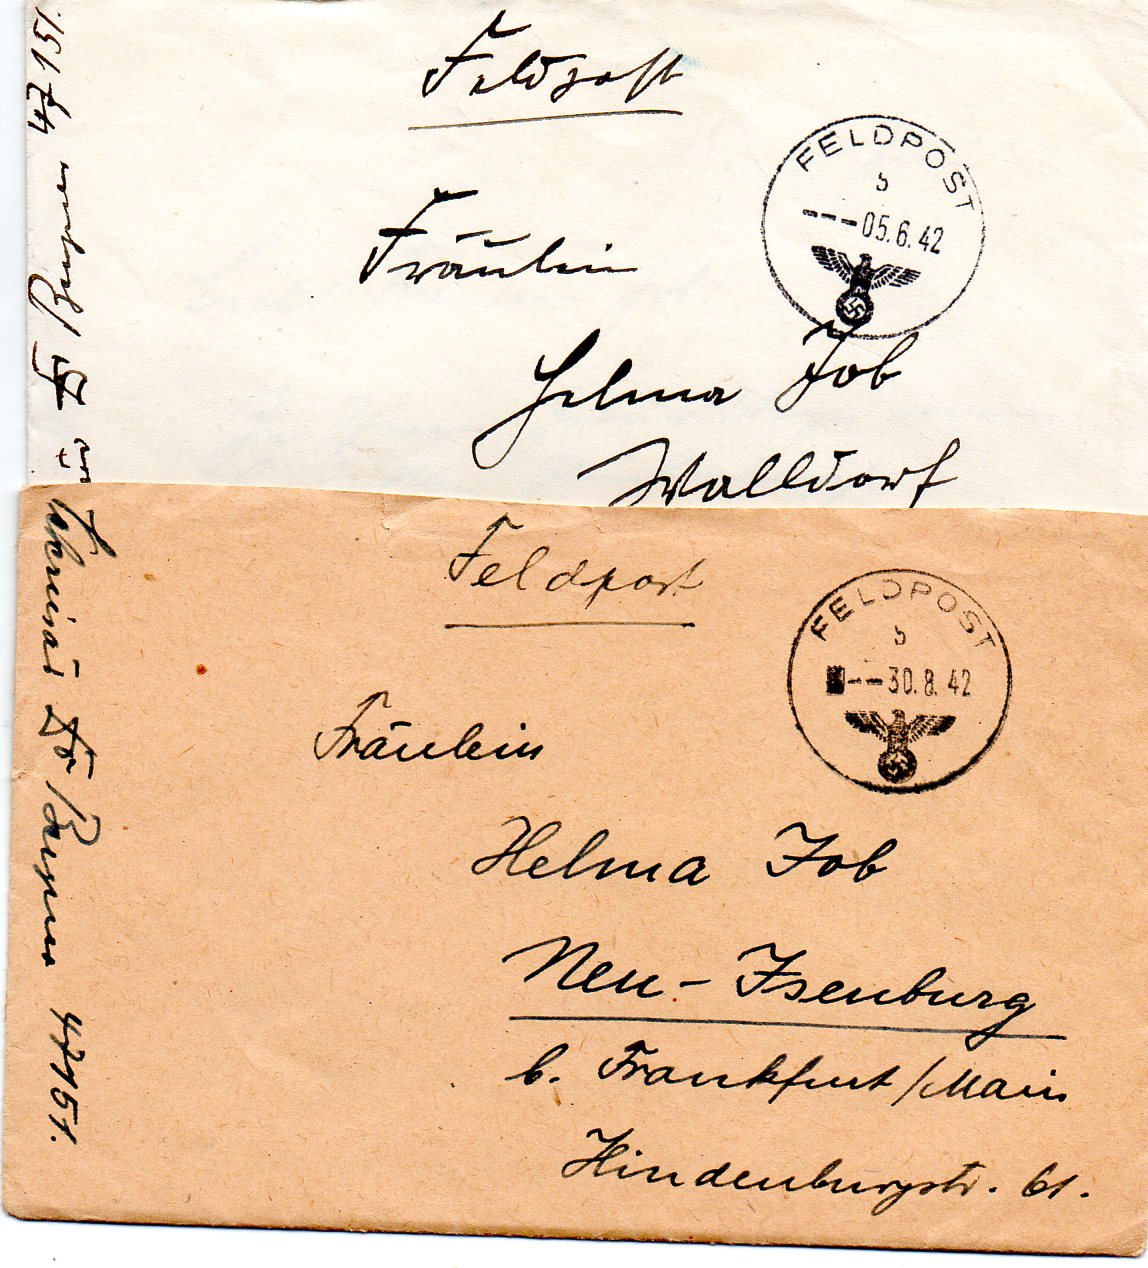 Feldpost
FELDPOST
b
---05.6.42
Fräulein
Helma Job
Walldorf
47151.
Feldpost
FELDPOST
b
---30.8.42
Fräulein
Helma Job
Neu-Isenburg
b. Frankfurt/Main
Hindenburgstr. 61.
47151.